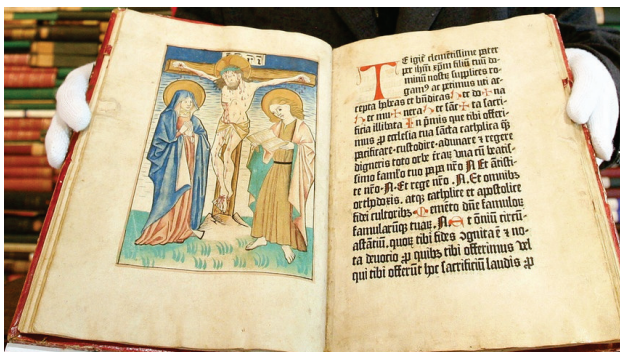 INRI
TE igit̃ clemẽtissime pater
per ihm̃ xp̃m filiũ tuũ do-
minũ nostrũ supplices ro-
gamꝰ ac petimus uti ac-
cepta habeas et bñdicas hec do ✠ na
hec mu ✠ nera hec sãc ✠ ta sacri-
ficia illibata In p̃mis que tibi offeri-
mus ꝓ ecclesia tua sãcta catholica q̃
pacificare custodire adunare ⁊ regere
digneris toto orbe traꝝ vna cũ beatis-
simo famlo tuo papa nr̃o N Et ãtisti-
te nr̃o .N. Et rege nr̃o .N. Et omnibꝫ
orthodoxis. atqꝫ catholice et apostolice
fidei cultoribꝫ Memẽto dñe famuloꝝ
famularũqꝫ tuaꝝ. N Et õniũ circũ-
astãtiũ. quoꝝ tibi fides ꝯgnita ẽ ⁊ no-
ta deuocio ꝓ quibꝫ tibi offerimus vel
qui tibi offerũt hoc sacrificiũ laudis ꝓ